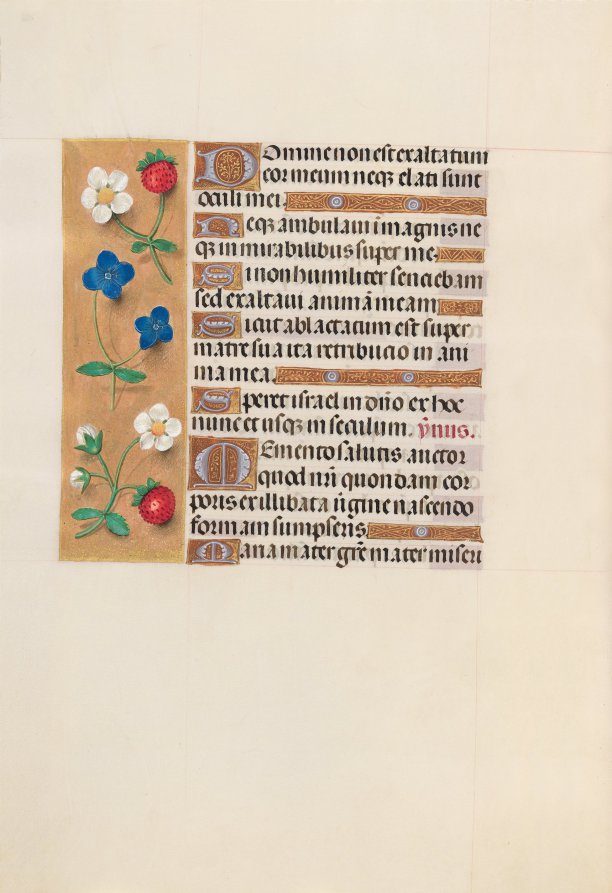 Domine non est exaltatum
cor meum neqꝫ elati sunt
oculi mei.
Neqꝫ ambulaui ī magnis ne
qꝫ in mirabilibus super me.
Si non humiliter senciebam
sed exaltaui animā meam
Sicut ablactatum est super
matre sua ita retribucio in ani
ma mea.
Speret israel in dn̄o ex hoc
nunc et usqꝫ in seculum. ym̄us.
Memento salutis auctor
quod nr̄i quondam cor
poris ex illibata ūgine nascendo
formam sumpseris
Maria mater gr̄e mater miseri